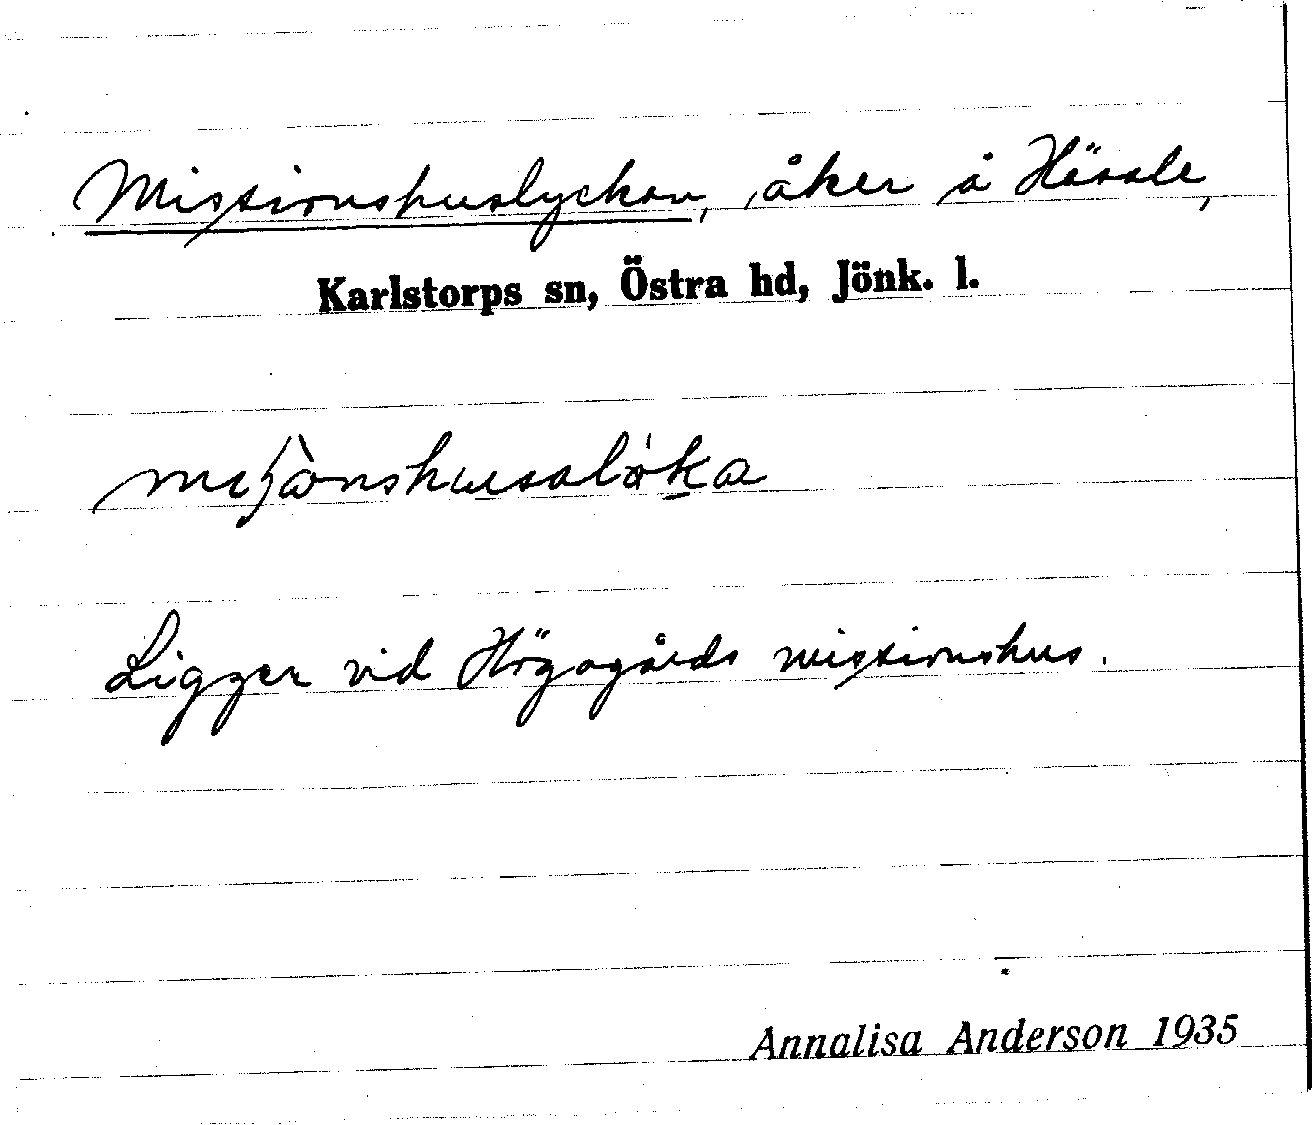 Missionshuslyckan, åker å Hässle,
Karlstorps sn, Östra hd, Jönk. l.
Ligger vid Högagärds missionshus.
Annalisa Anderson 1935